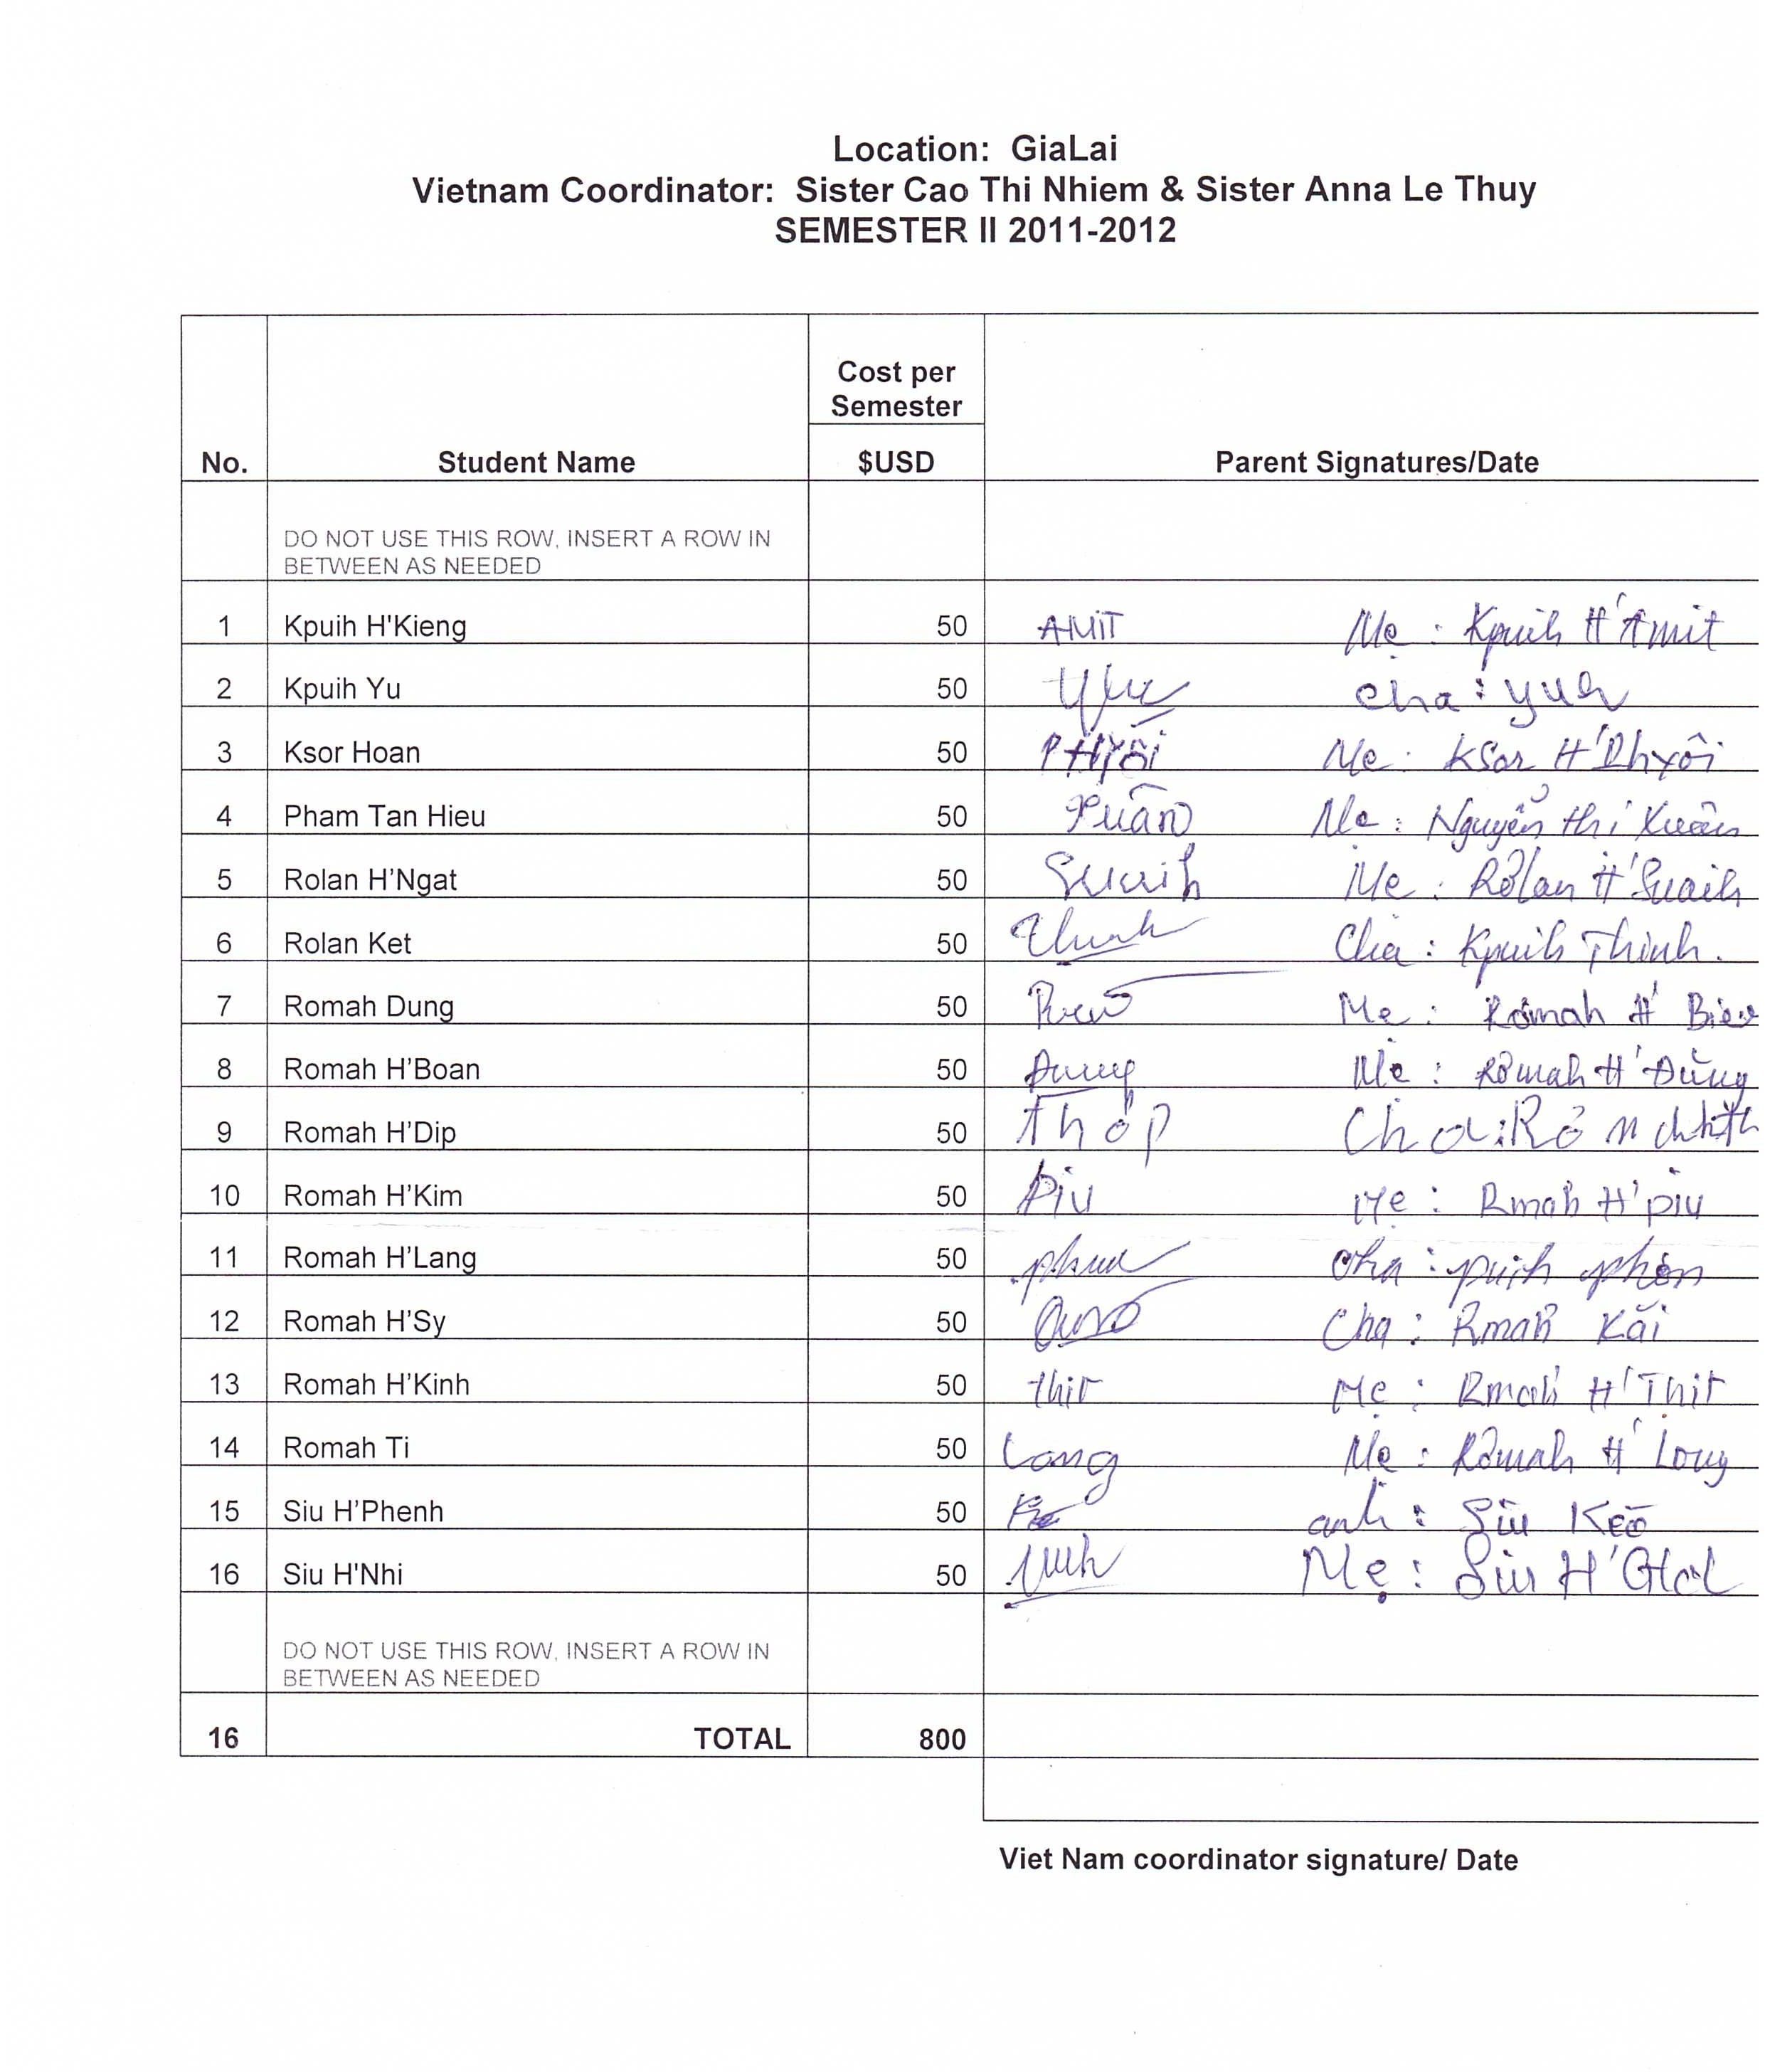 Location: GiaLai
Vietnam Coordinator: Sister Cao Thi Nhiem & Sister Anna Le Thuy
SEMESTER II 2011-2012
Cost per
Semester
No. Student Name $USD Parent Signatures/Date
DO NOT USE THIS ROW, INSERT A ROW IN
BETWEEN AS NEEDED
1 Kpuih H'Kieng 50 AMIT Mẹ : Kpuih H'Amit
2 Kpuih Yu 50 cha :
3 Ksor Hoan 50 Mẹ : Ksor
4 Pham Tan Hieu 50 Xuân Mẹ : Nguyễn thị Xuân
5 Rolan H'Ngat 50 Suaih Mẹ : Rơlan H'Suaih
6 Rolan Ket 50 Cha : Kpuih Thinh.
7 Romah Dung 50 Mẹ : Rơmah H'
8 Romah H'Boan 50 Mẹ : Rơmah
9 Romah H'Dip 50 Cha :
10 Romah H'Kim 50 Piu Mẹ : Rmah H'piu
11 Romah H'Lang 50 cha : puih
12 Romah H'Sy 50 Cha : Rmah Kăi
13 Romah H'Kinh 50 thit Mẹ : Rmah H'Thit
14 Romah Ti 50 Mẹ : Rơmah H'
15 Siu H'Phenh 50 anh : Siu
16 Siu H'Nhi 50 Mẹ : Siu
DO NOT USE THIS ROW, INSERT A ROW IN
BETWEEN AS NEEDED
16 TOTAL 800
Viet Nam coordinator signature/ Date